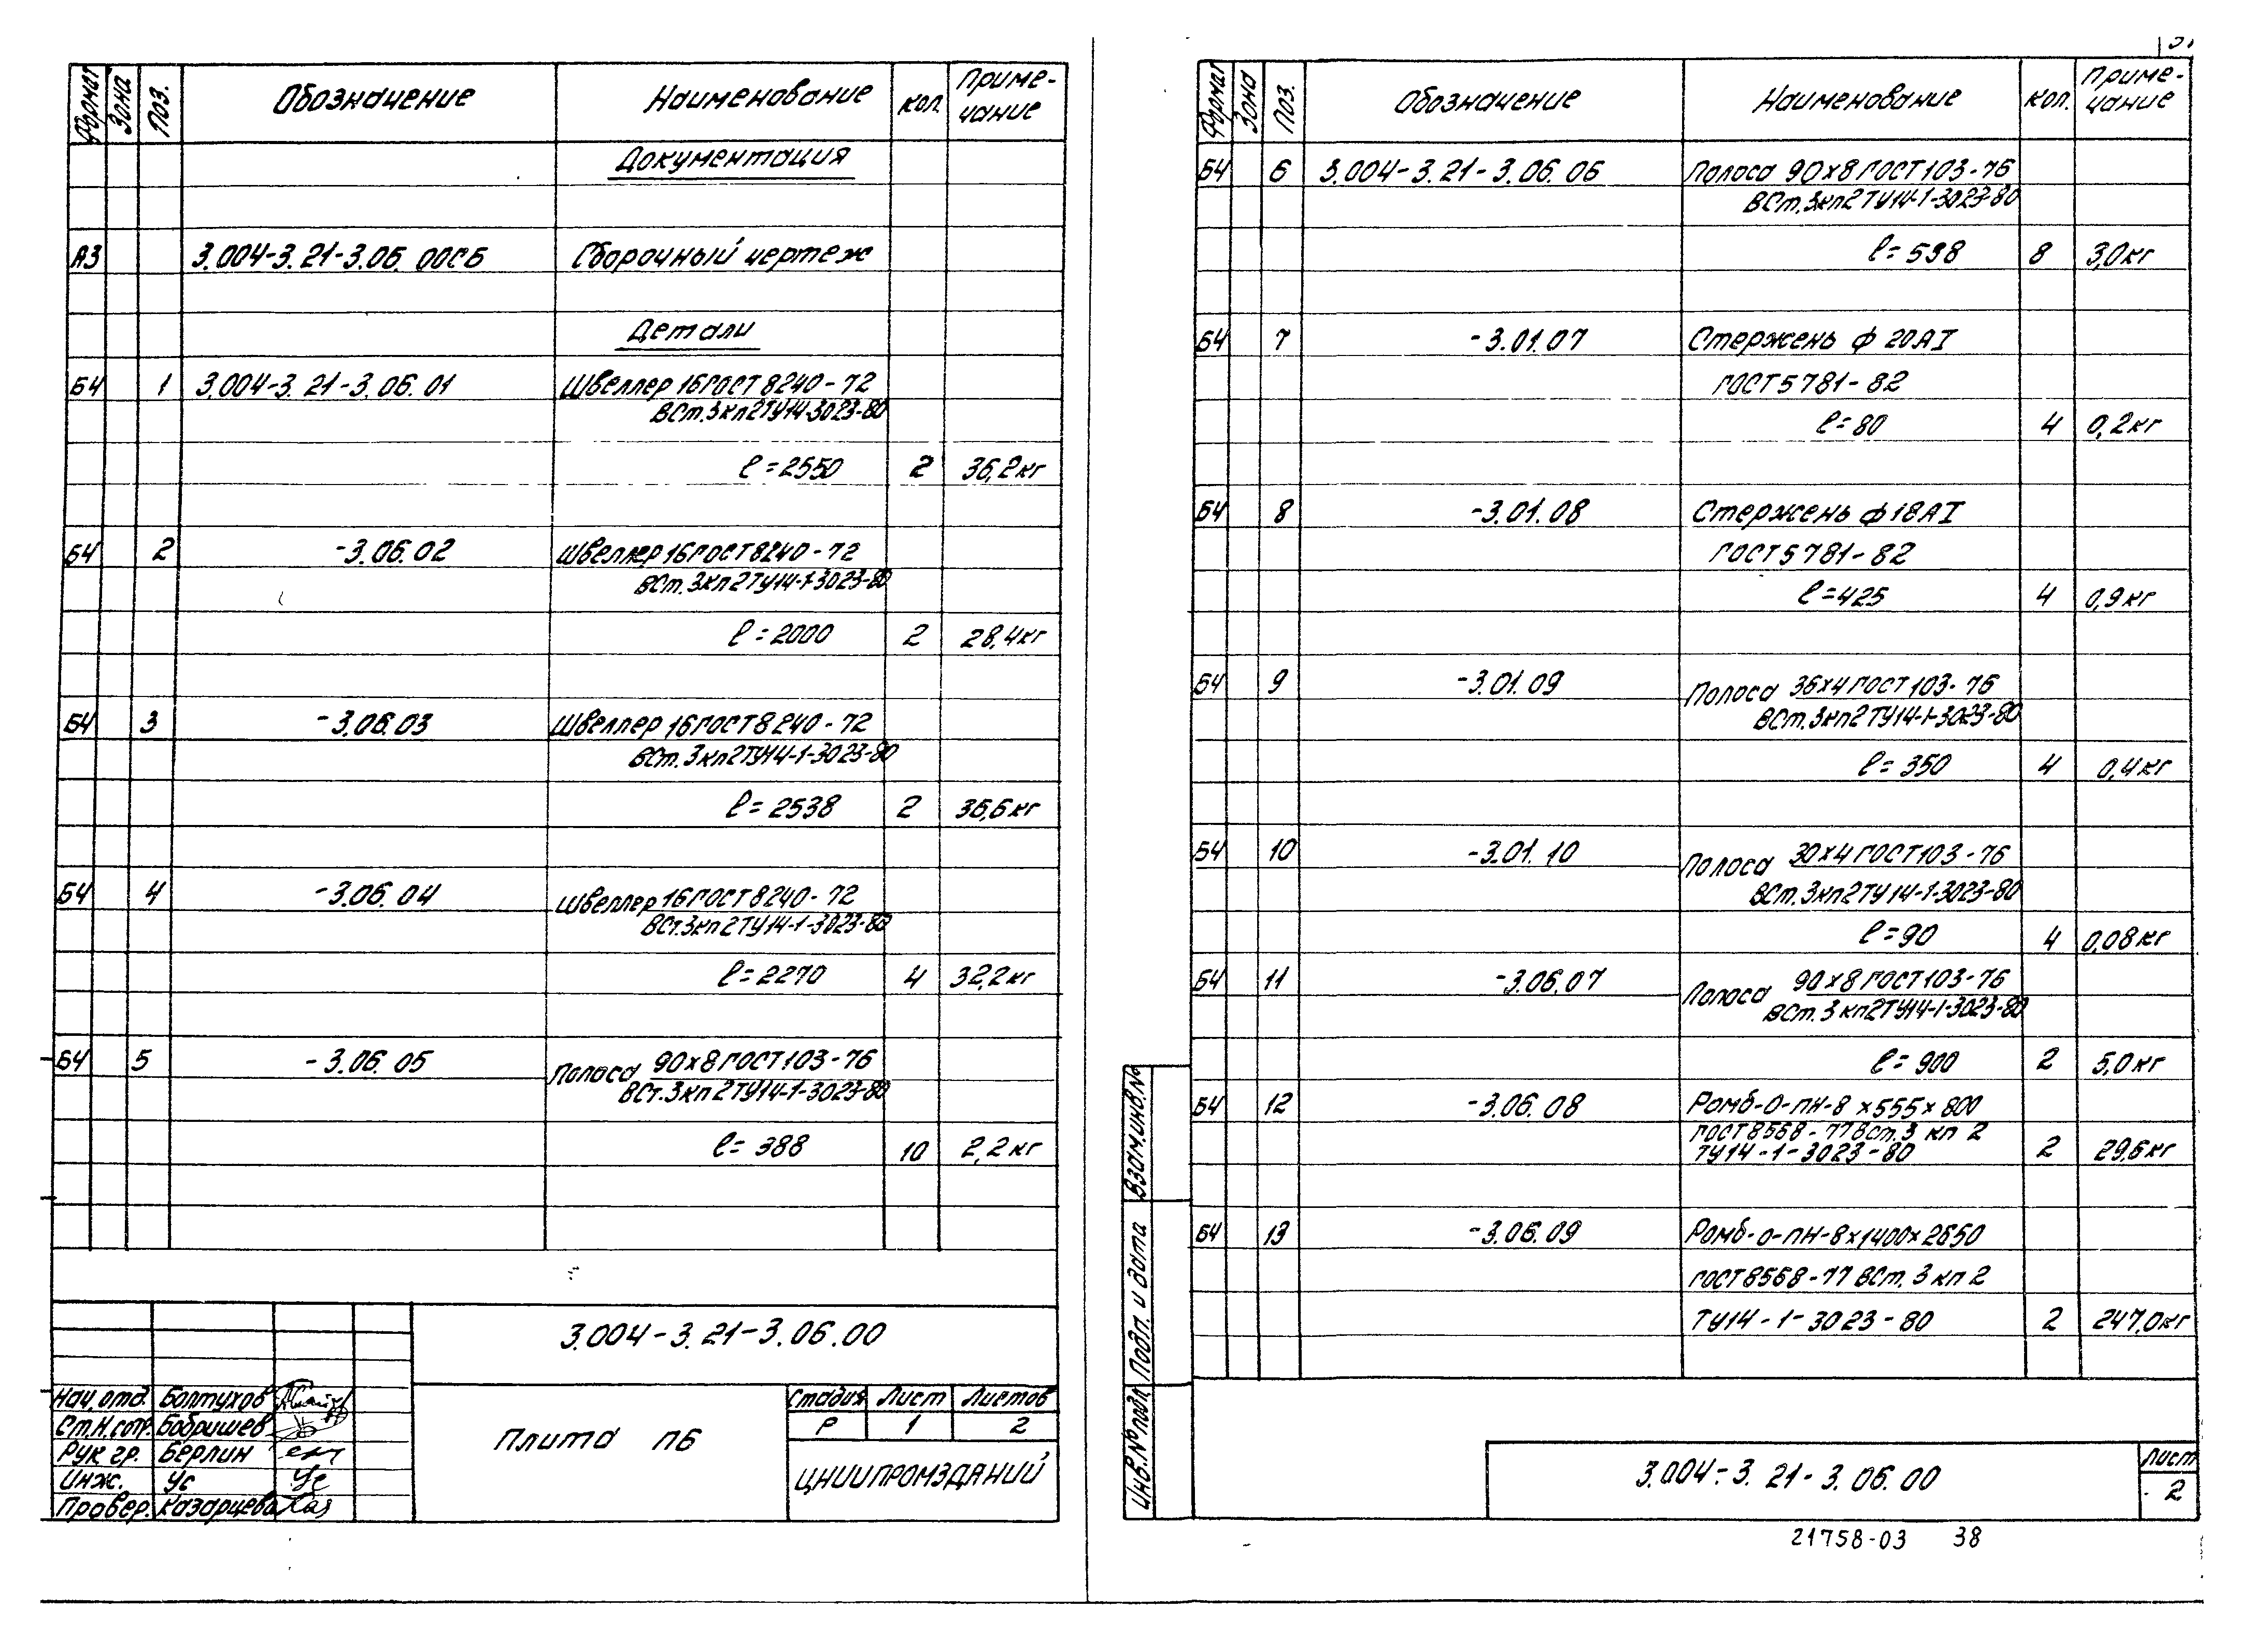 Формат Зона Поз. Обозначение Наименование Кол. Приме-
чание
Документация
А3 3.004-3.21-3.06.00СБ Сборочный чертеж
Детали
Б4 1 3.004-3.21-3.06.01 Швеллер 16 ГОСТ 8240-72
ВСт.3кп2ТУ14-3023-80
ℓ=2550 2 36,2кг
Б4 2 -3.06.02 Швеллер 16 ГОСТ 8240-72
ВСт.3кп2ТУ14-1-3023-80
ℓ=2000 2 28,4кг
Б4 3 -3.06.03 Швеллер 16 ГОСТ 8240-72
ВСт.3кп2ТУ14-1-3023-80
ℓ=2538 2 36,6кг
Б4 4 -3.06.04 Швеллер 16 ГОСТ 8240-72
ВСт.3кп2ТУ14-1-3023-80
ℓ=2270 4 32,2кг
Б4 5 -3.06.05 Полоса 90×8 ГОСТ 103-76
ВСт.3кп2ТУ14-1-3023-80
ℓ=388 10 2,2кг
3.004-3.21-3.06.00
Нач.отд. Болтухов
Ст.н.сотр. Бобришев
Рук гр. Берлин
Инж. Ус
Провер. Казарцева
Плита П6
Стадия Лист Листов
Р 1 2
ЦНИИПРОМЗДАНИЙ
Формат Зона Поз. Обозначение Наименование Кол. Приме-
чание
Б4 6 3.004-3.21-3.06.06 Полоса 90×8 ГОСТ 103-76
ВСт.3кп2ТУ14-1-3023-80
ℓ=598 8 3,0кг
Б4 7 -3.01.07 Стержень ф 20АI
ГОСТ 5781-82
ℓ=80 4 0,2кг
Б4 8 -3.01.08 Стержень ф18АI
ГОСТ 5781-82
ℓ=425 4 0,9кг
Б4 9 -3.01.09 Полоса 36×4 ГОСТ 103-76
ВСт.3кп2ТУ14-1-3023-80
ℓ=350 4 0,4кг
Б4 10 -3.01.10 Полоса 30×4 ГОСТ 103-76
ВСт.3кп2ТУ14-1-3023-80
ℓ=90 4 0,08кг
Б4 11 -3.06.07 Полоса 90×8 ГОСТ 103-76
ВСт.3кп2ТУ14-1-3023-80
ℓ=900 2 5,0кг
Б4 12 -3.06.08 Ромб-О-ПН-8×555×800
ГОСТ 8568-77 ВСт.3 кп 2
ТУ14-1-3023-80 2 29,6кг
Б4 13 -3.06.09 Ромб-О-ПН-8×1400×2650
ГОСТ 8568-77 ВСт.3кп 2
ТУ14-1-3023-80 2 247,0кг
Взам.инв.№
Подп. и дата
Инв.№подл
3.004-3.21-3.06.00
Лист
2
21758-03 38